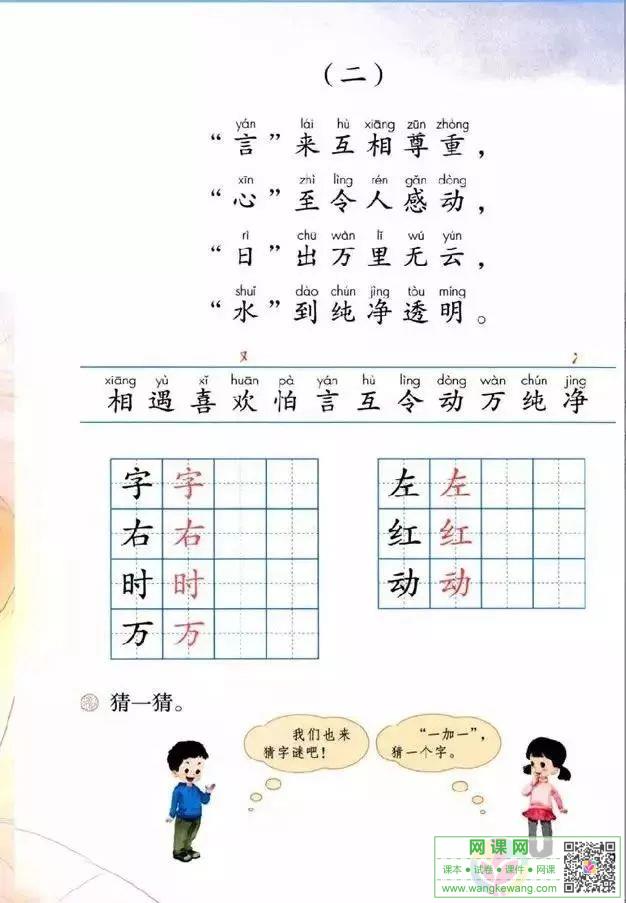 （二）
yán lái hù xiāng zūn zhòng
“言”来互相尊重，
xīn zhì lìng rén gǎn dòng
“心”至令人感动，
rì chū wàn lǐ wú yún
“日”出万里无云，
shuǐ dào chún jìng tòu míng
“水”到纯净透明。
又 冫
xiāng yù xǐ huān pà yán hù lìng dòng wàn chún jìng
相遇喜欢怕言互令动万纯净
字 字 左 左
右 右 红 红
时 时 动 动
万 万
猜一猜。
我们也来
猜字谜吧！
“一加一”，
猜一个字。
网课网
课本·试卷·课件·网课
www.wangkewang.com